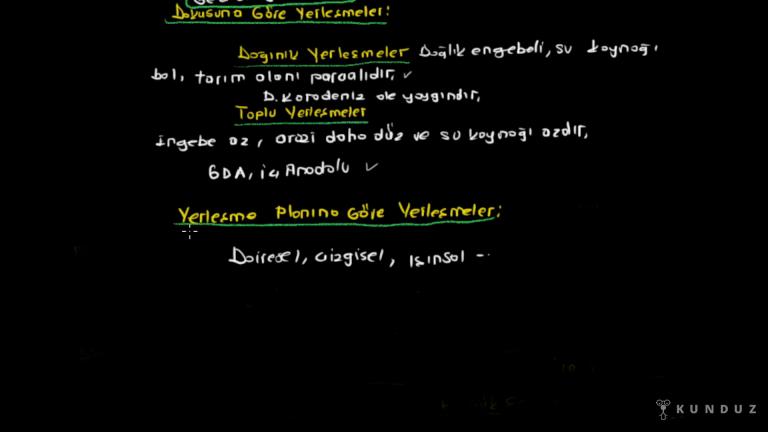 Dokusuna Göre Yerleşmeler:
Dağınık Yerleşmeler Dağlık engebeli, su kaynağı
bol, tarım alanı parçalıdır, ✓
D. Karadeniz de yaygındır,
Toplu Yerleşmeler
Engebe az, arazi daha düz ve su kaynağı azdır,
GDA, iç Anadolu ✓
Yerleşme Planına Göre Yerleşmeler:
Dairesel, çizgisel, Işınsal --
KUNDUZ